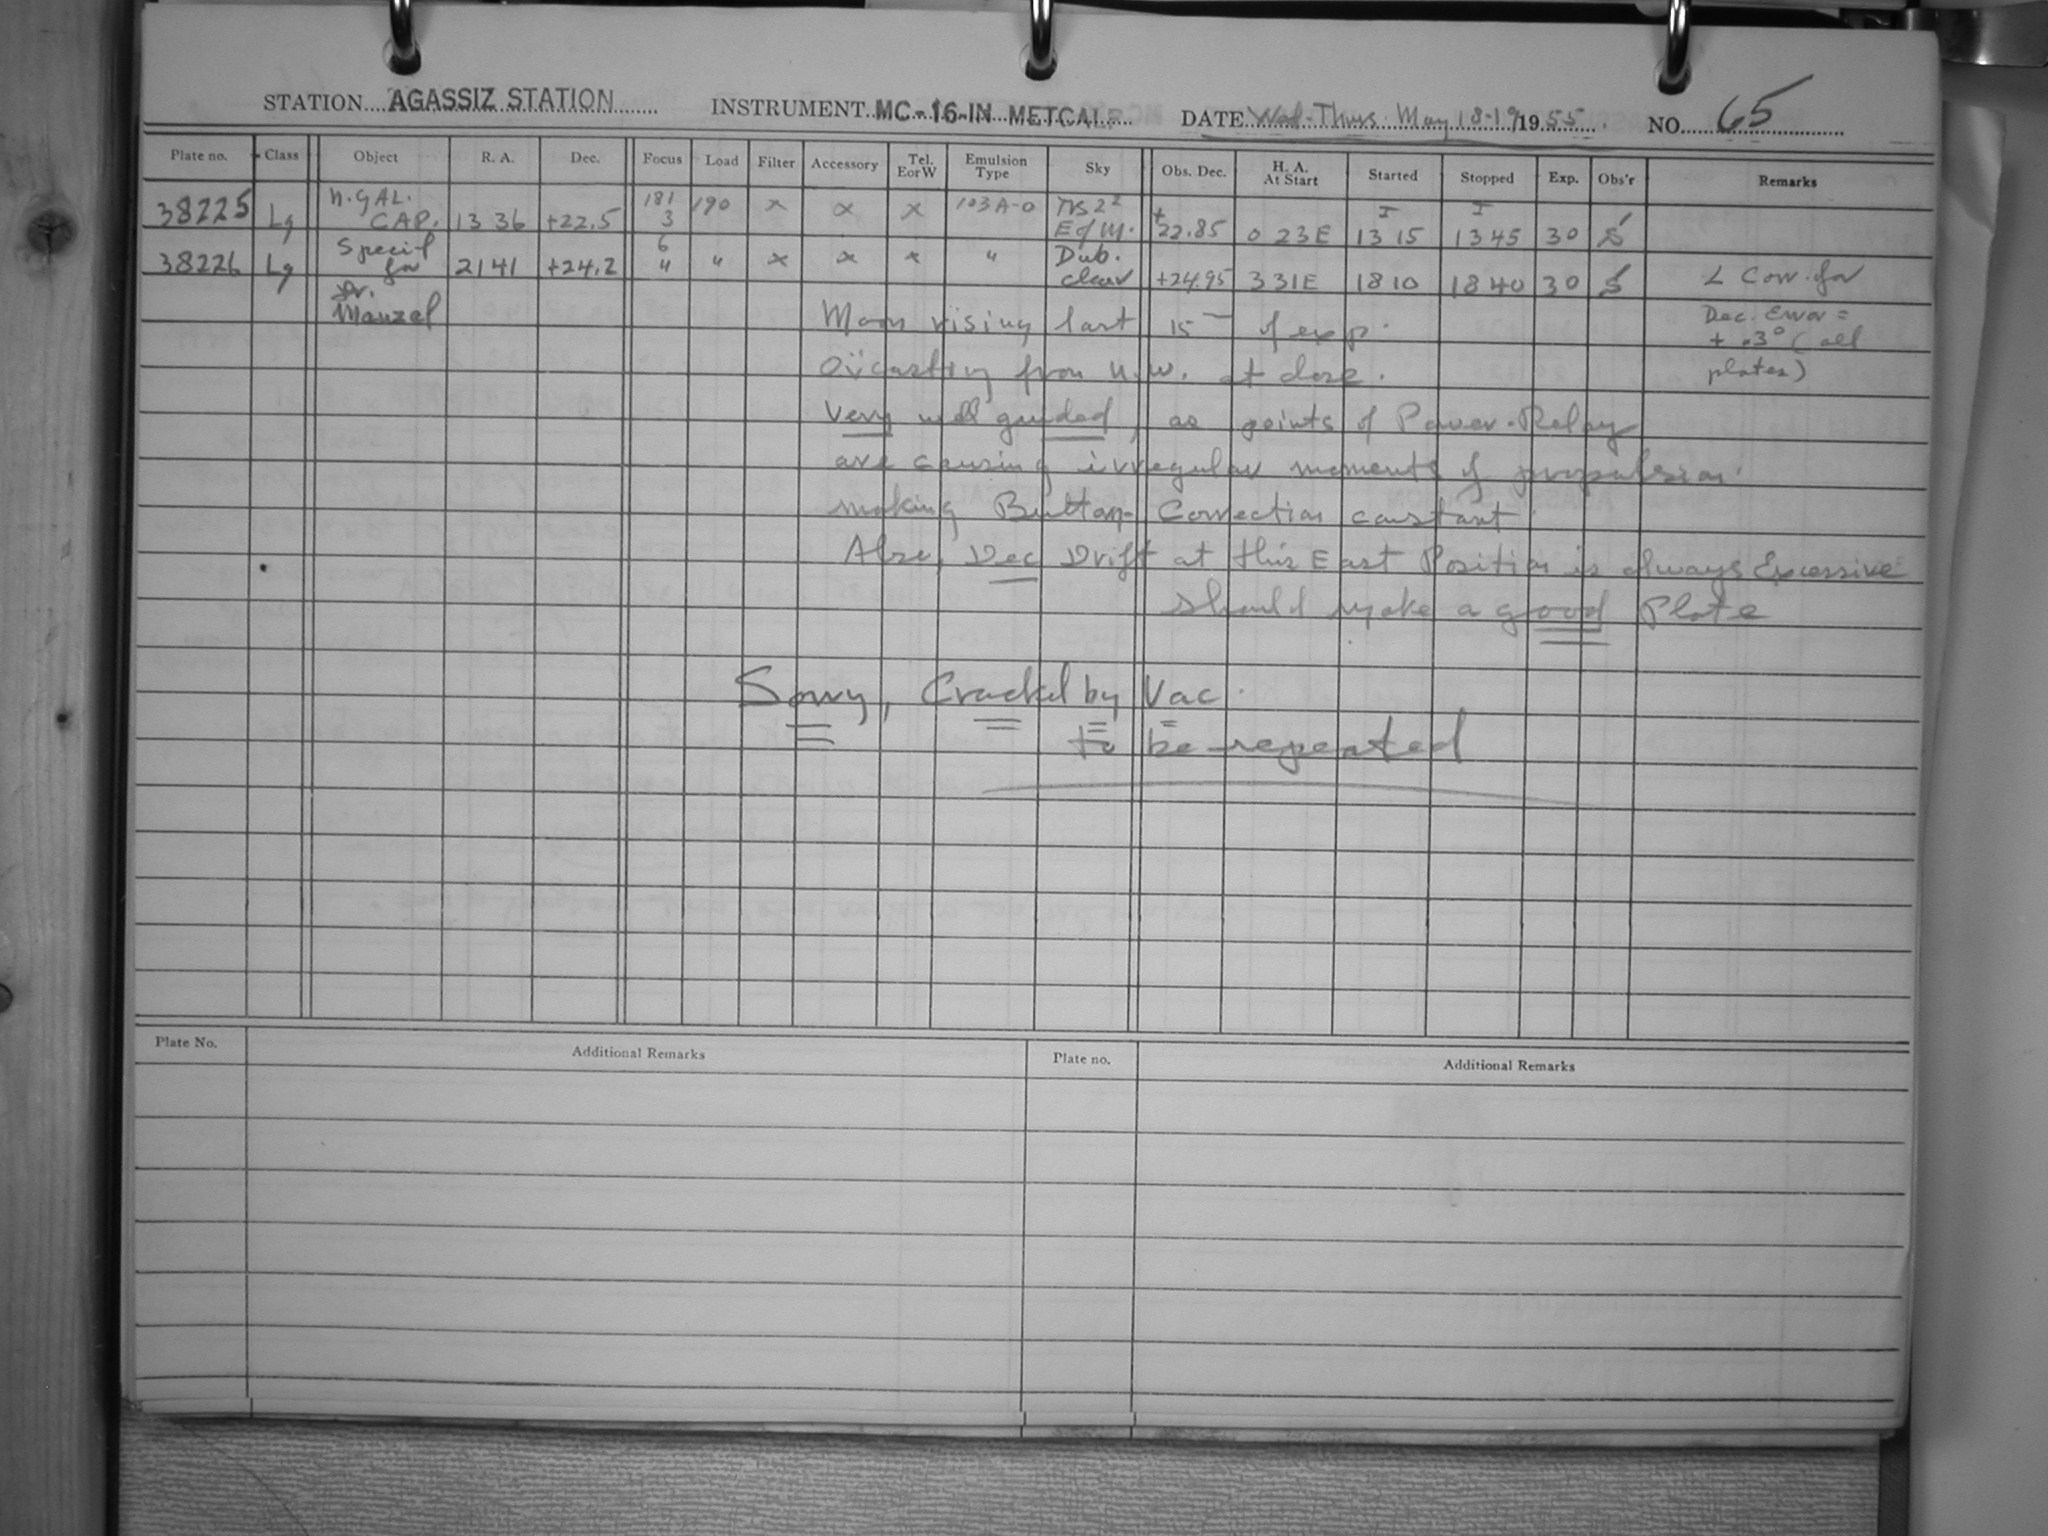 STATION....AGASSIZ STATION...... INSTRUMENT..MC-16-IN METCALF.... DATE Wed-Thurs. May 18-19/1955..... NO....65..............
Plate no. Class Object R. A. Dec. Focus Load Filter Accessory Tel. EorW Emulsion Type Sky Obs. Dec. H. A. At Start Started Stopped Exp. Obs'r Remarks
38225 Lg N. GAL. CAP. 13 36 +22.5 181 3 190 x x x 103A-O E of M. +22.85 0 23E 13 15 13 45 30 S
38226 Lg Special for 21 41 +24.2 6 " " x x x " Dub. clear +24.95 3 31E 18 10 18 40 30 S L Corr. for
Dr. Menzel Moon rising last 15 m of exp. Dec. Error =
+ .3° (all
Ov'casting from N.W. at close. plates)
Very well guided, as points of Power-Relay
are causing irregular moments of propulsion.
making Button-Correction constant.
Also, Dec Drift at this East Position is always Excessive
Should make a good Plate
Sorry, Cracked by Vac.
to be repeated
Plate No. Additional Remarks Plate no. Additional Remarks